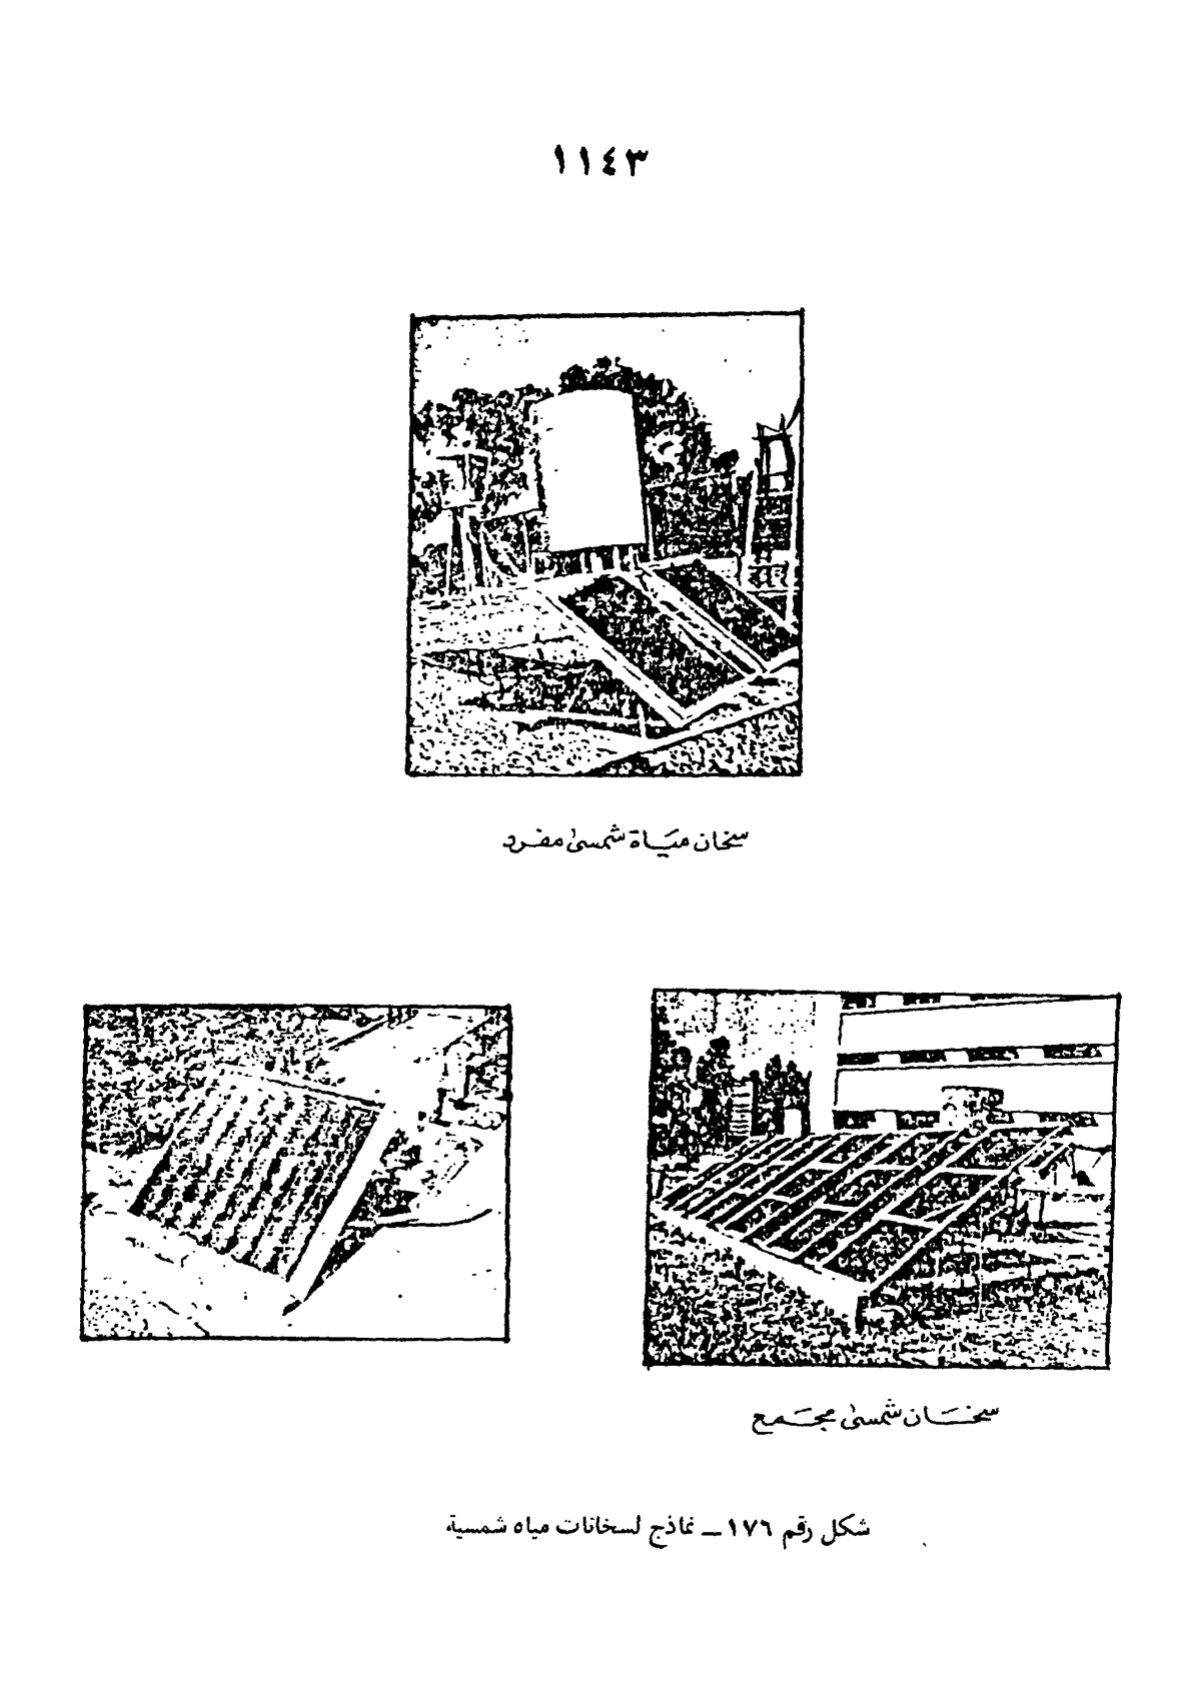 ١١٤٣
سخان مياة شمسى مفرد
سخان شمسى مجمع
شكل رقم ١٧٦ ـ نماذج لسخانات مياه شمسية